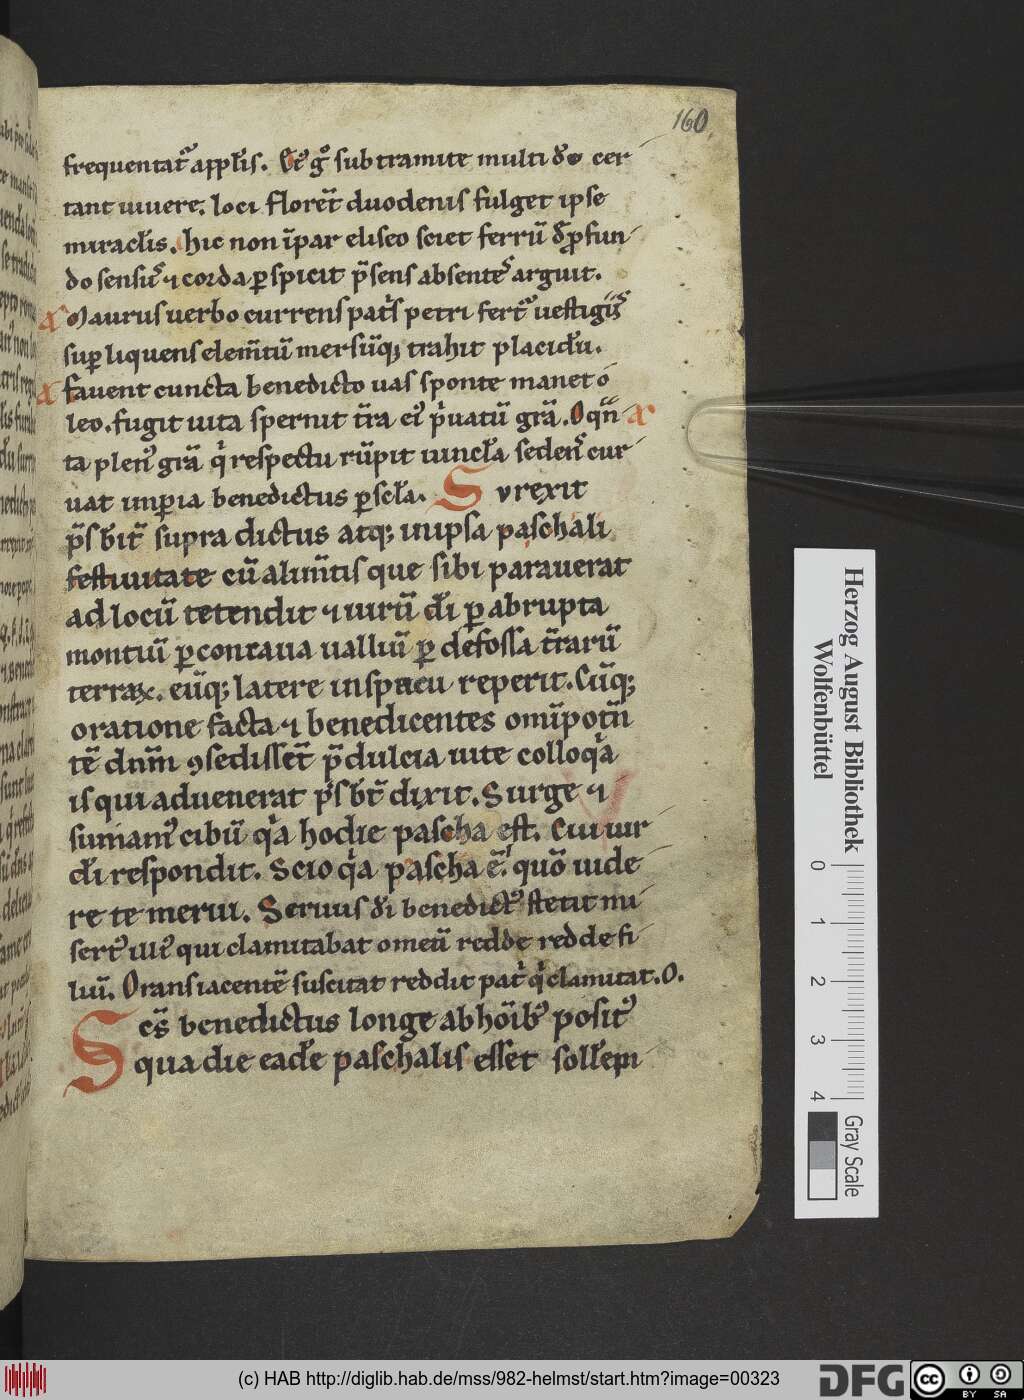 160.
frequentat᷑ appl̄is. Cet᷑ gͦ sub tramite multi dō cer
tant uiuere. loci floret̄ duodenis fulget ipse
miracl̄is. hic non īpar eliseo sciet ferrū d̄ profun
do sensuˢ ⁊ corda ꝑspicit p̄sens absenteˢ arguit.
Maurus uerbo currens pat̄s petri fert᷑ uestigiis
suꝑ liquens elem̄tū mersūq; trahit placidū.
fauent cuncta benedicto uas sponte manet o
leo. fugit uita spernit t̄ra ei᷒ p̍uatū grā. O qn̄
ta plen᷒ grā q̍ respectu rūpit iuncl̄a seden᷒ cur
uat imperia benedictus ꝑ scl̄a. Surexit
p̄s bīt᷑ supra dictus atq; in ipsa paschali
festiuitate cū alim̄tis que sibi parauerat
ad locū tetendit ⁊ uirū dī ꝑ abrupta
montiū ꝑ concaua ualliū ꝑ defossa t̄rarū
terraꝝ. eūq; latere in specu reperit. Cūq;
oratione facta ⁊ benedicentes omīpotn̄
tē dnm̄ ꝯsedisset̄ p̄ dulcia uite colloq̍a
is qui aduenerat p̄sbt̄ dixit. Surge ⁊
sumam᷒ cibū q̍a hodie pascha est. Cui uir
dī respondit. Scio q̍a pascha ē. quō uide
re te merui. Seruus dī benedict᷒ stetit mi
sert᷒ illi᷒ qui clamitabat o meū redde redde fi
liū. Orans iacentē suscitat reddit pat̍ q̍ clamitat. O.
Scs̄ benedictus longe ab hōib᷒ posit᷒
qua die eadē paschalis esset sollēpni
Herzog August Bibliothek
Wolfenbüttel
0 1 2 3 4
Gray Scale
(c) HAB http://diglib.hab.de/mss/982-helmst/start.htm?image=00323
DFG
cc BY SA